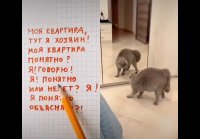 МОЯ КВАРТИРА,
ТУТ Я ХОЗЯИН!
МОЯ КВАРТИРА
ПОНЯТНО?
Я! ГОВОРЮ!
Я! ПОНЯТНО
ИЛИ НЕ НЕТ? Я!
Я ПОНЯТНО
ОБЪЯСНЯЮ?!